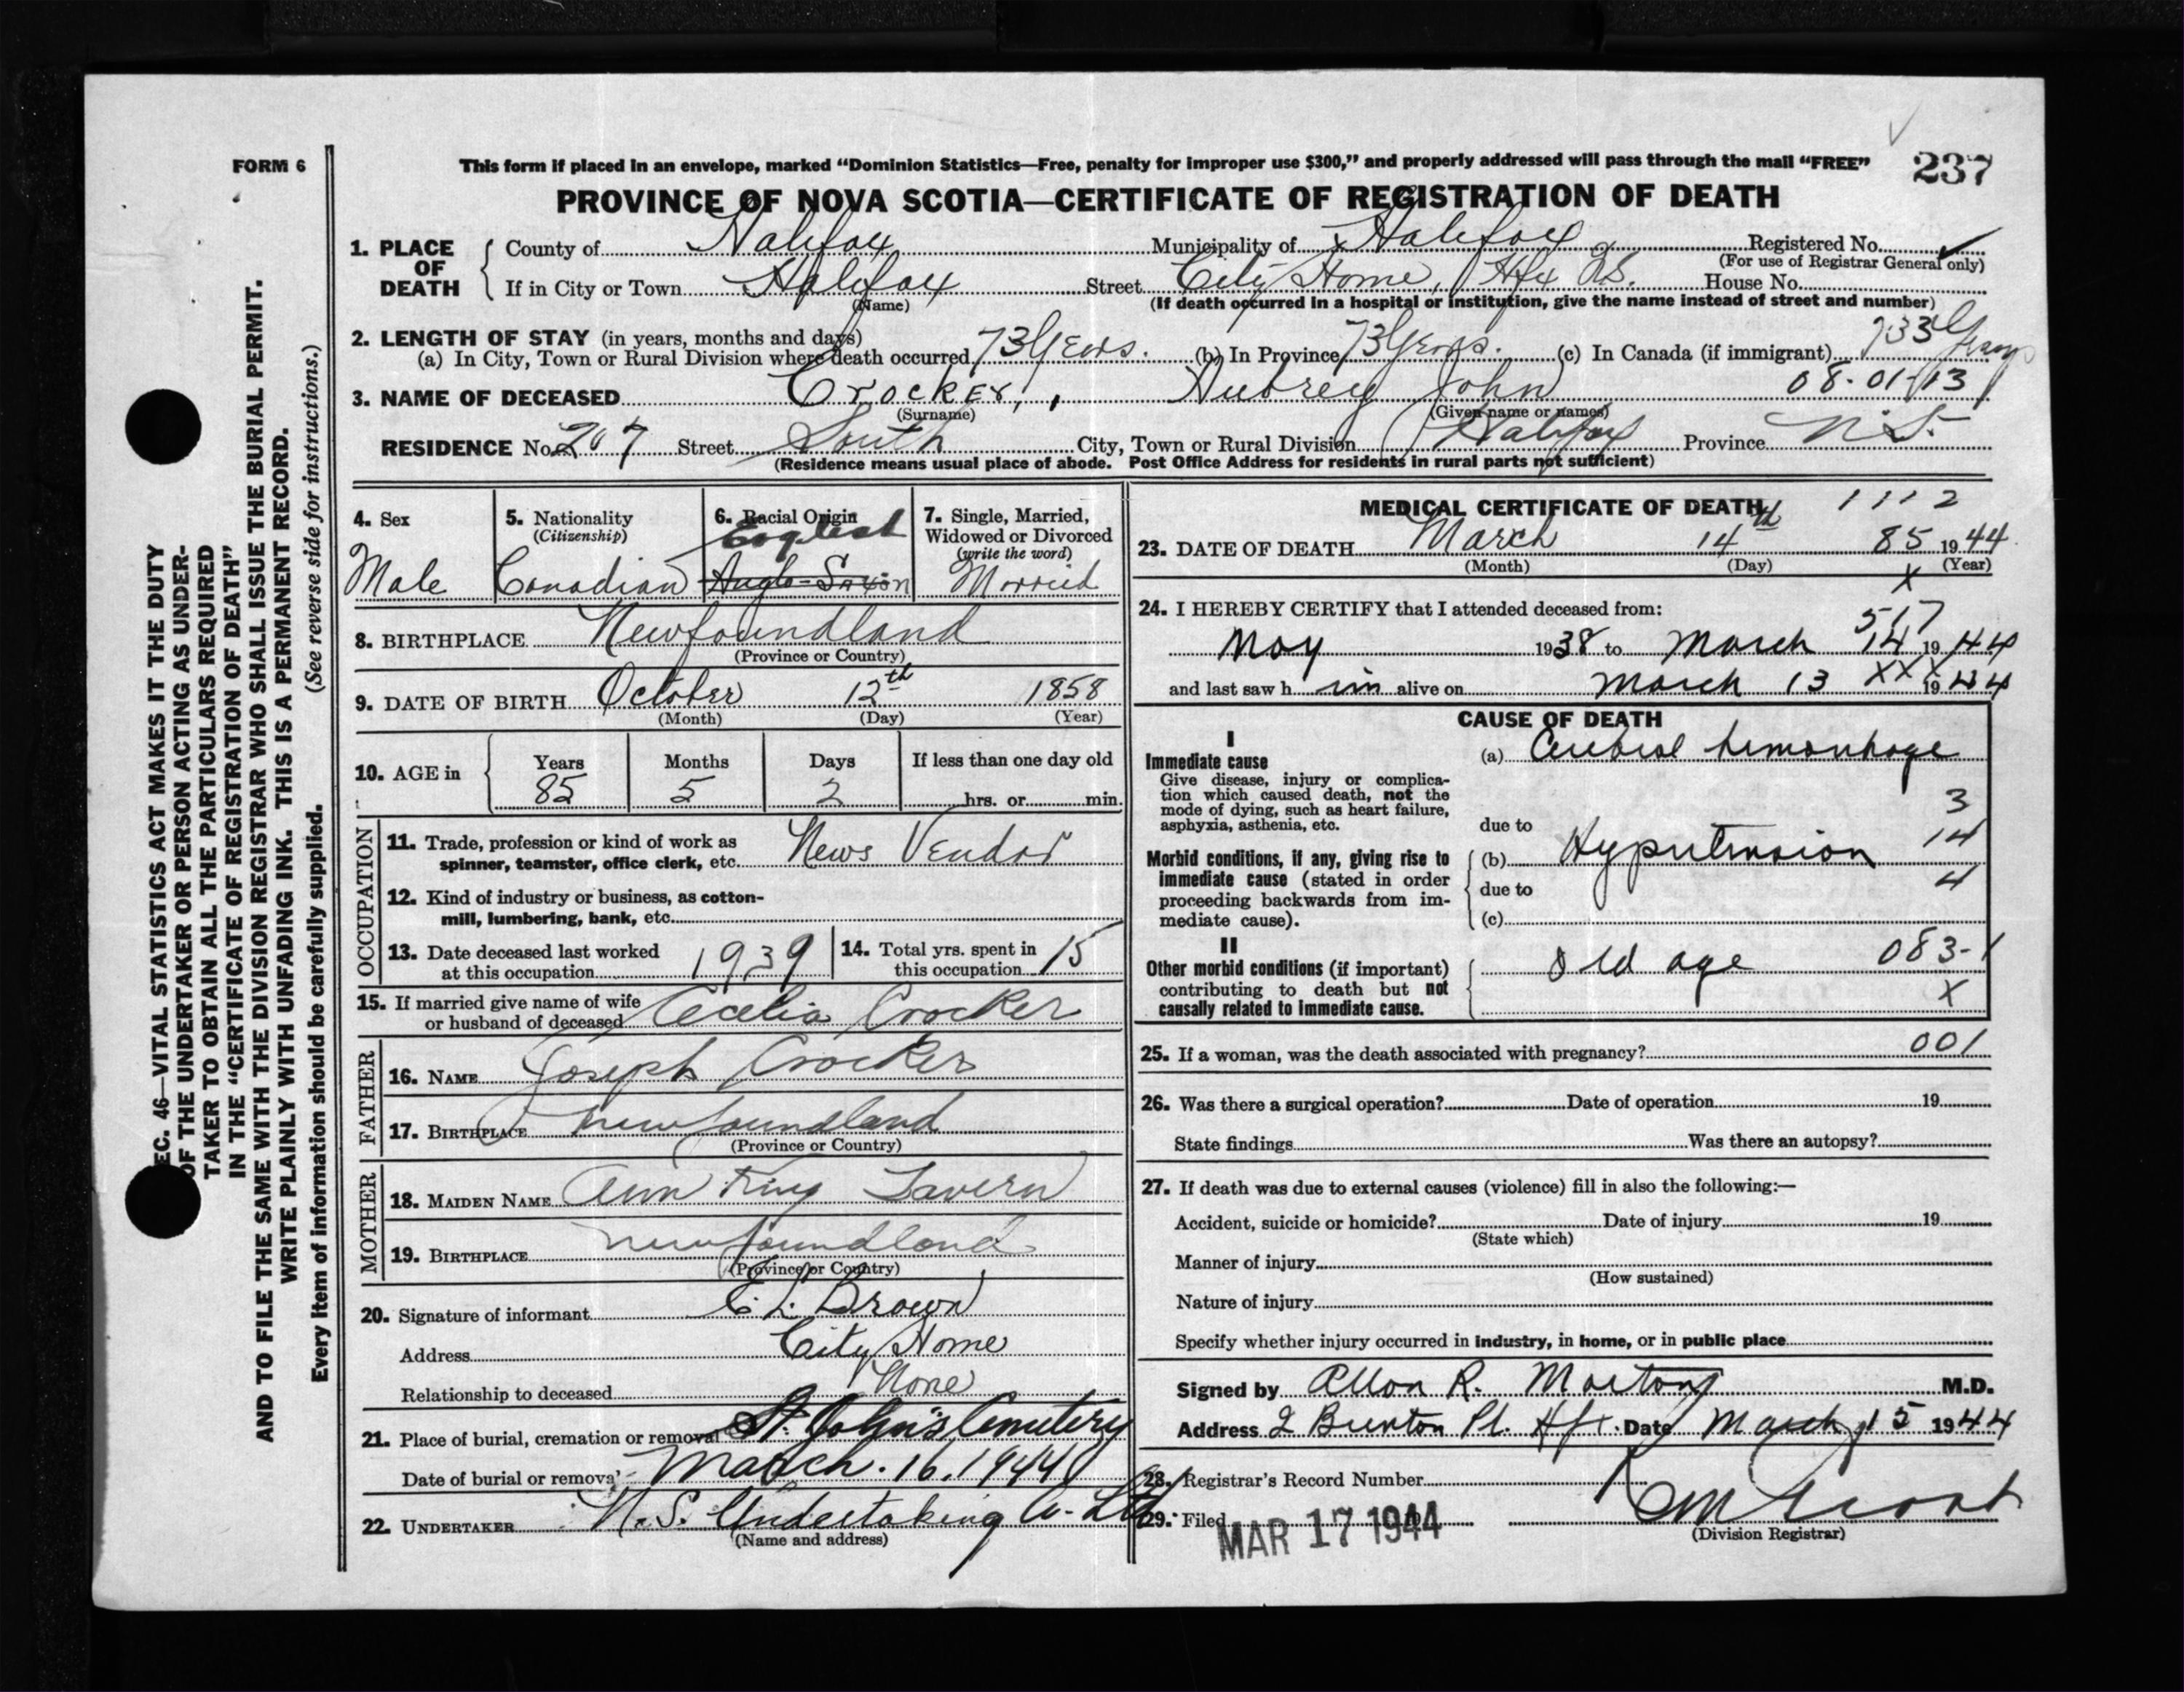 FORM 6
This form if placed in an envelope, marked “Dominion Statistics—Free, penalty for improper use $300,” and properly addressed will pass through the mail “FREE”
237
PROVINCE OF NOVA SCOTIA—CERTIFICATE OF REGISTRATION OF DEATH
1. PLACE OF DEATH
County of Halifax Municipality of Halifax Registered No.
(For use of Registrar General only)
If in City or Town Halifax Street City Home, Hfx N.S. House No.
(Name) (If death occurred in a hospital or institution, give the name instead of street and number)
2. LENGTH OF STAY (in years, months and days)
(a) In City, Town or Rural Division where death occurred 73 Years. (b) In Province 73 Years. (c) In Canada (if immigrant) 73 Years
3. NAME OF DECEASED Crocker, Aubrey John 08-01-13
(Surname) (Given name or names)
RESIDENCE No. 207 Street South City, Town or Rural Division Halifax Province N.S.
(Residence means usual place of abode. Post Office Address for residents in rural parts not sufficient)
4. Sex
Male
5. Nationality
(Citizenship)
Canadian
6. Racial Origin
English
Anglo-Saxon
7. Single, Married,
Widowed or Divorced
(write the word)
Married
8. BIRTHPLACE Newfoundland
(Province or Country)
9. DATE OF BIRTH October 12th 1858
(Month) (Day) (Year)
10. AGE in
Years Months Days If less than one day old
85 5 2 hrs. or min.
OCCUPATION
11. Trade, profession or kind of work as
spinner, teamster, office clerk, etc. News Vendor
12. Kind of industry or business, as cotton-
mill, lumbering, bank, etc.
13. Date deceased last worked
at this occupation 1939
14. Total yrs. spent in
this occupation 15
15. If married give name of wife
or husband of deceased Cecelia Crocker
FATHER
16. NAME Joseph Crocker
17. BIRTHPLACE Newfoundland
(Province or Country)
MOTHER
18. MAIDEN NAME Ann King Tavern
19. BIRTHPLACE Newfoundland
(Province or Country)
20. Signature of informant E. L. Brown
Address City Home
Relationship to deceased None
21. Place of burial, cremation or removal St. John's Cemetery
Date of burial or removal March. 16, 1944
22. UNDERTAKER N.S. Undertaking Co. Ltd
(Name and address)
MEDICAL CERTIFICATE OF DEATH 1112
23. DATE OF DEATH March 14th 85 1944
(Month) (Day) (Year)
X
24. I HEREBY CERTIFY that I attended deceased from:
517
May 1938 to March 14 1944
and last saw h im alive on March 13 XXX 1944
CAUSE OF DEATH
I
Immediate cause
Give disease, injury or complica-
tion which caused death, not the
mode of dying, such as heart failure,
asphyxia, asthenia, etc.
(a) Cerebral hemorrhage
3
due to
14
Morbid conditions, if any, giving rise to
immediate cause (stated in order
proceeding backwards from im-
mediate cause).
(b) Hypertension
4
due to
(c)
II
Other morbid conditions (if important)
contributing to death but not
causally related to immediate cause.
Old age 083-1
X
25. If a woman, was the death associated with pregnancy? 001
26. Was there a surgical operation? Date of operation 19
State findings Was there an autopsy?
27. If death was due to external causes (violence) fill in also the following:—
Accident, suicide or homicide? Date of injury 19
(State which)
Manner of injury
(How sustained)
Nature of injury
Specify whether injury occurred in industry, in home, or in public place
Signed by Allan R. Morton M.D.
Address 2 Burton Pl. Hfx. Date March 15 1944
28. Registrar's Record Number
29. Filed MAR 17 1944
(Division Registrar)
SEC. 46—VITAL STATISTICS ACT MAKES IT THE DUTY
OF THE UNDERTAKER OR PERSON ACTING AS UNDER-
TAKER TO OBTAIN ALL THE PARTICULARS REQUIRED
IN THE “CERTIFICATE OF REGISTRATION OF DEATH”
AND TO FILE THE SAME WITH THE DIVISION REGISTRAR WHO SHALL ISSUE THE BURIAL PERMIT.
WRITE PLAINLY WITH UNFADING INK. THIS IS A PERMANENT RECORD.
Every item of information should be carefully supplied. (See reverse side for instructions.)